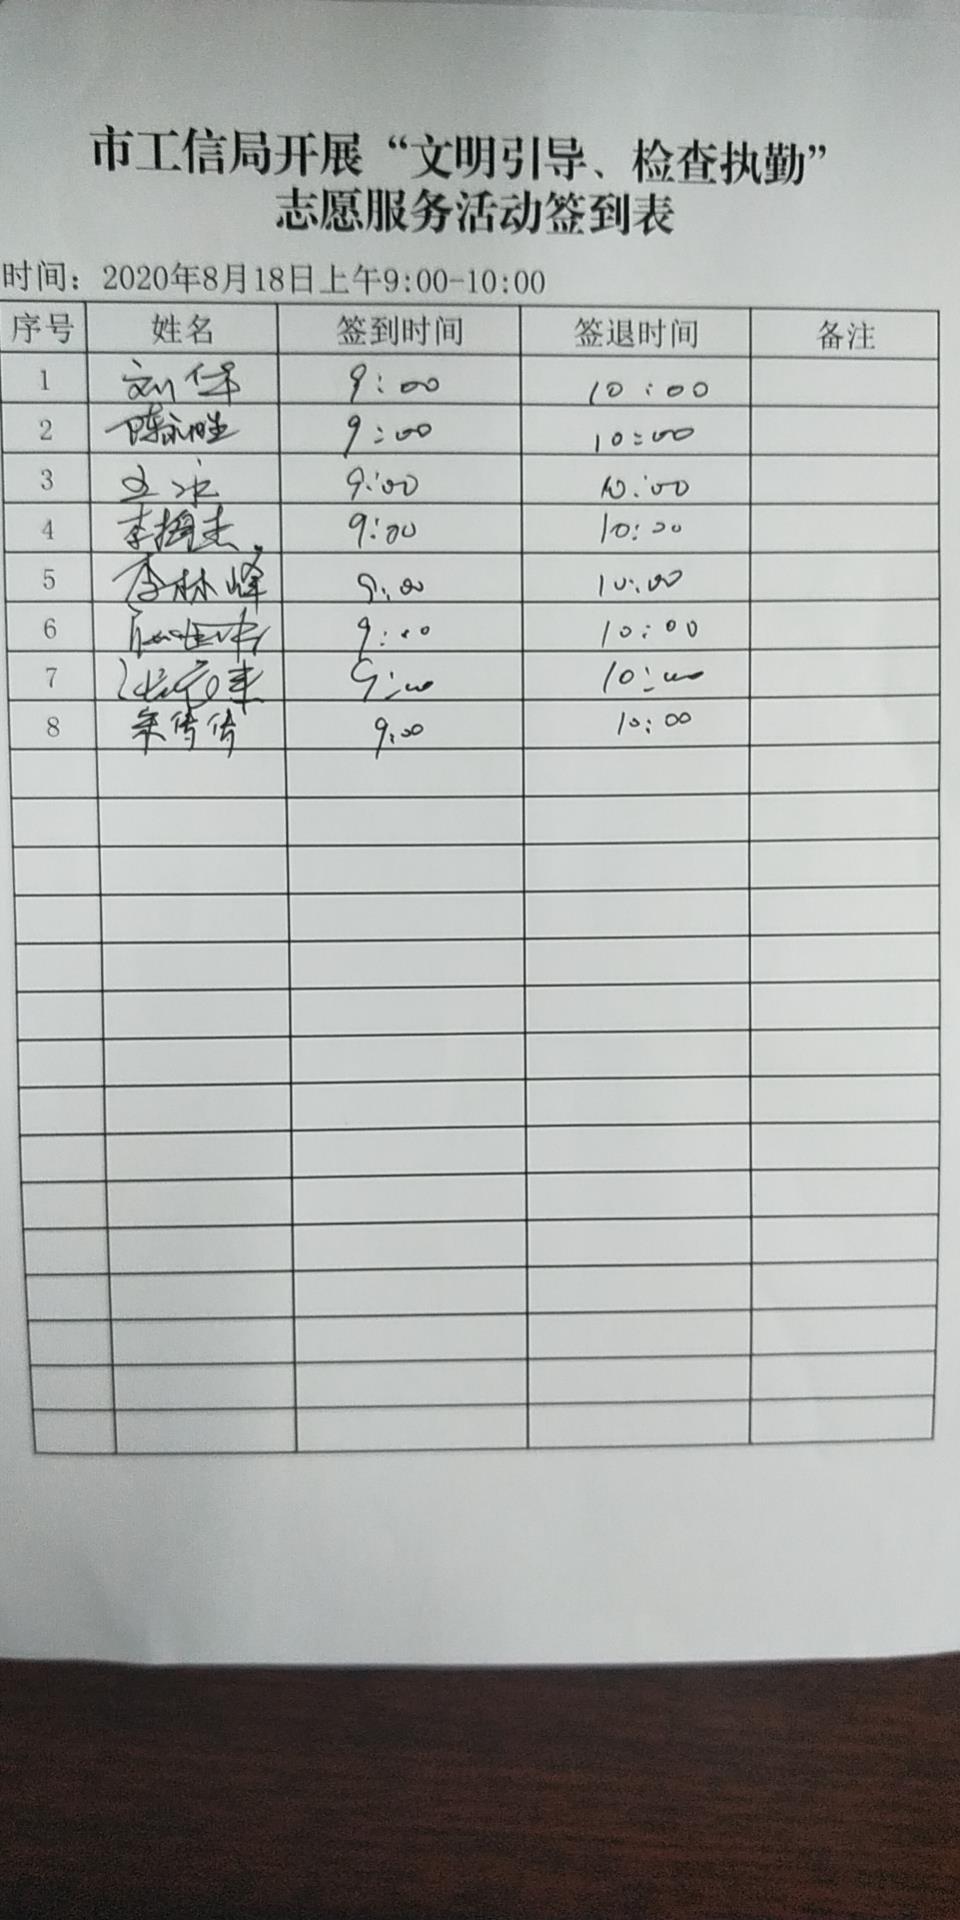 市工信局开展“文明引导、检查执勤”
志愿服务活动签到表
时间：2020年8月18日上午9:00-10:00
序号 姓名 签到时间 签退时间 备注
1 刘保 9:00 10:00
2 陈永胜 9:00 10:00
3 9:00 10:00
4 李 杰 9:00 10:00
5 李林峰 9:00 10:00
6 9:00 10:00
7 9:00 10:00
8 朱倩倩 9:00 10:00